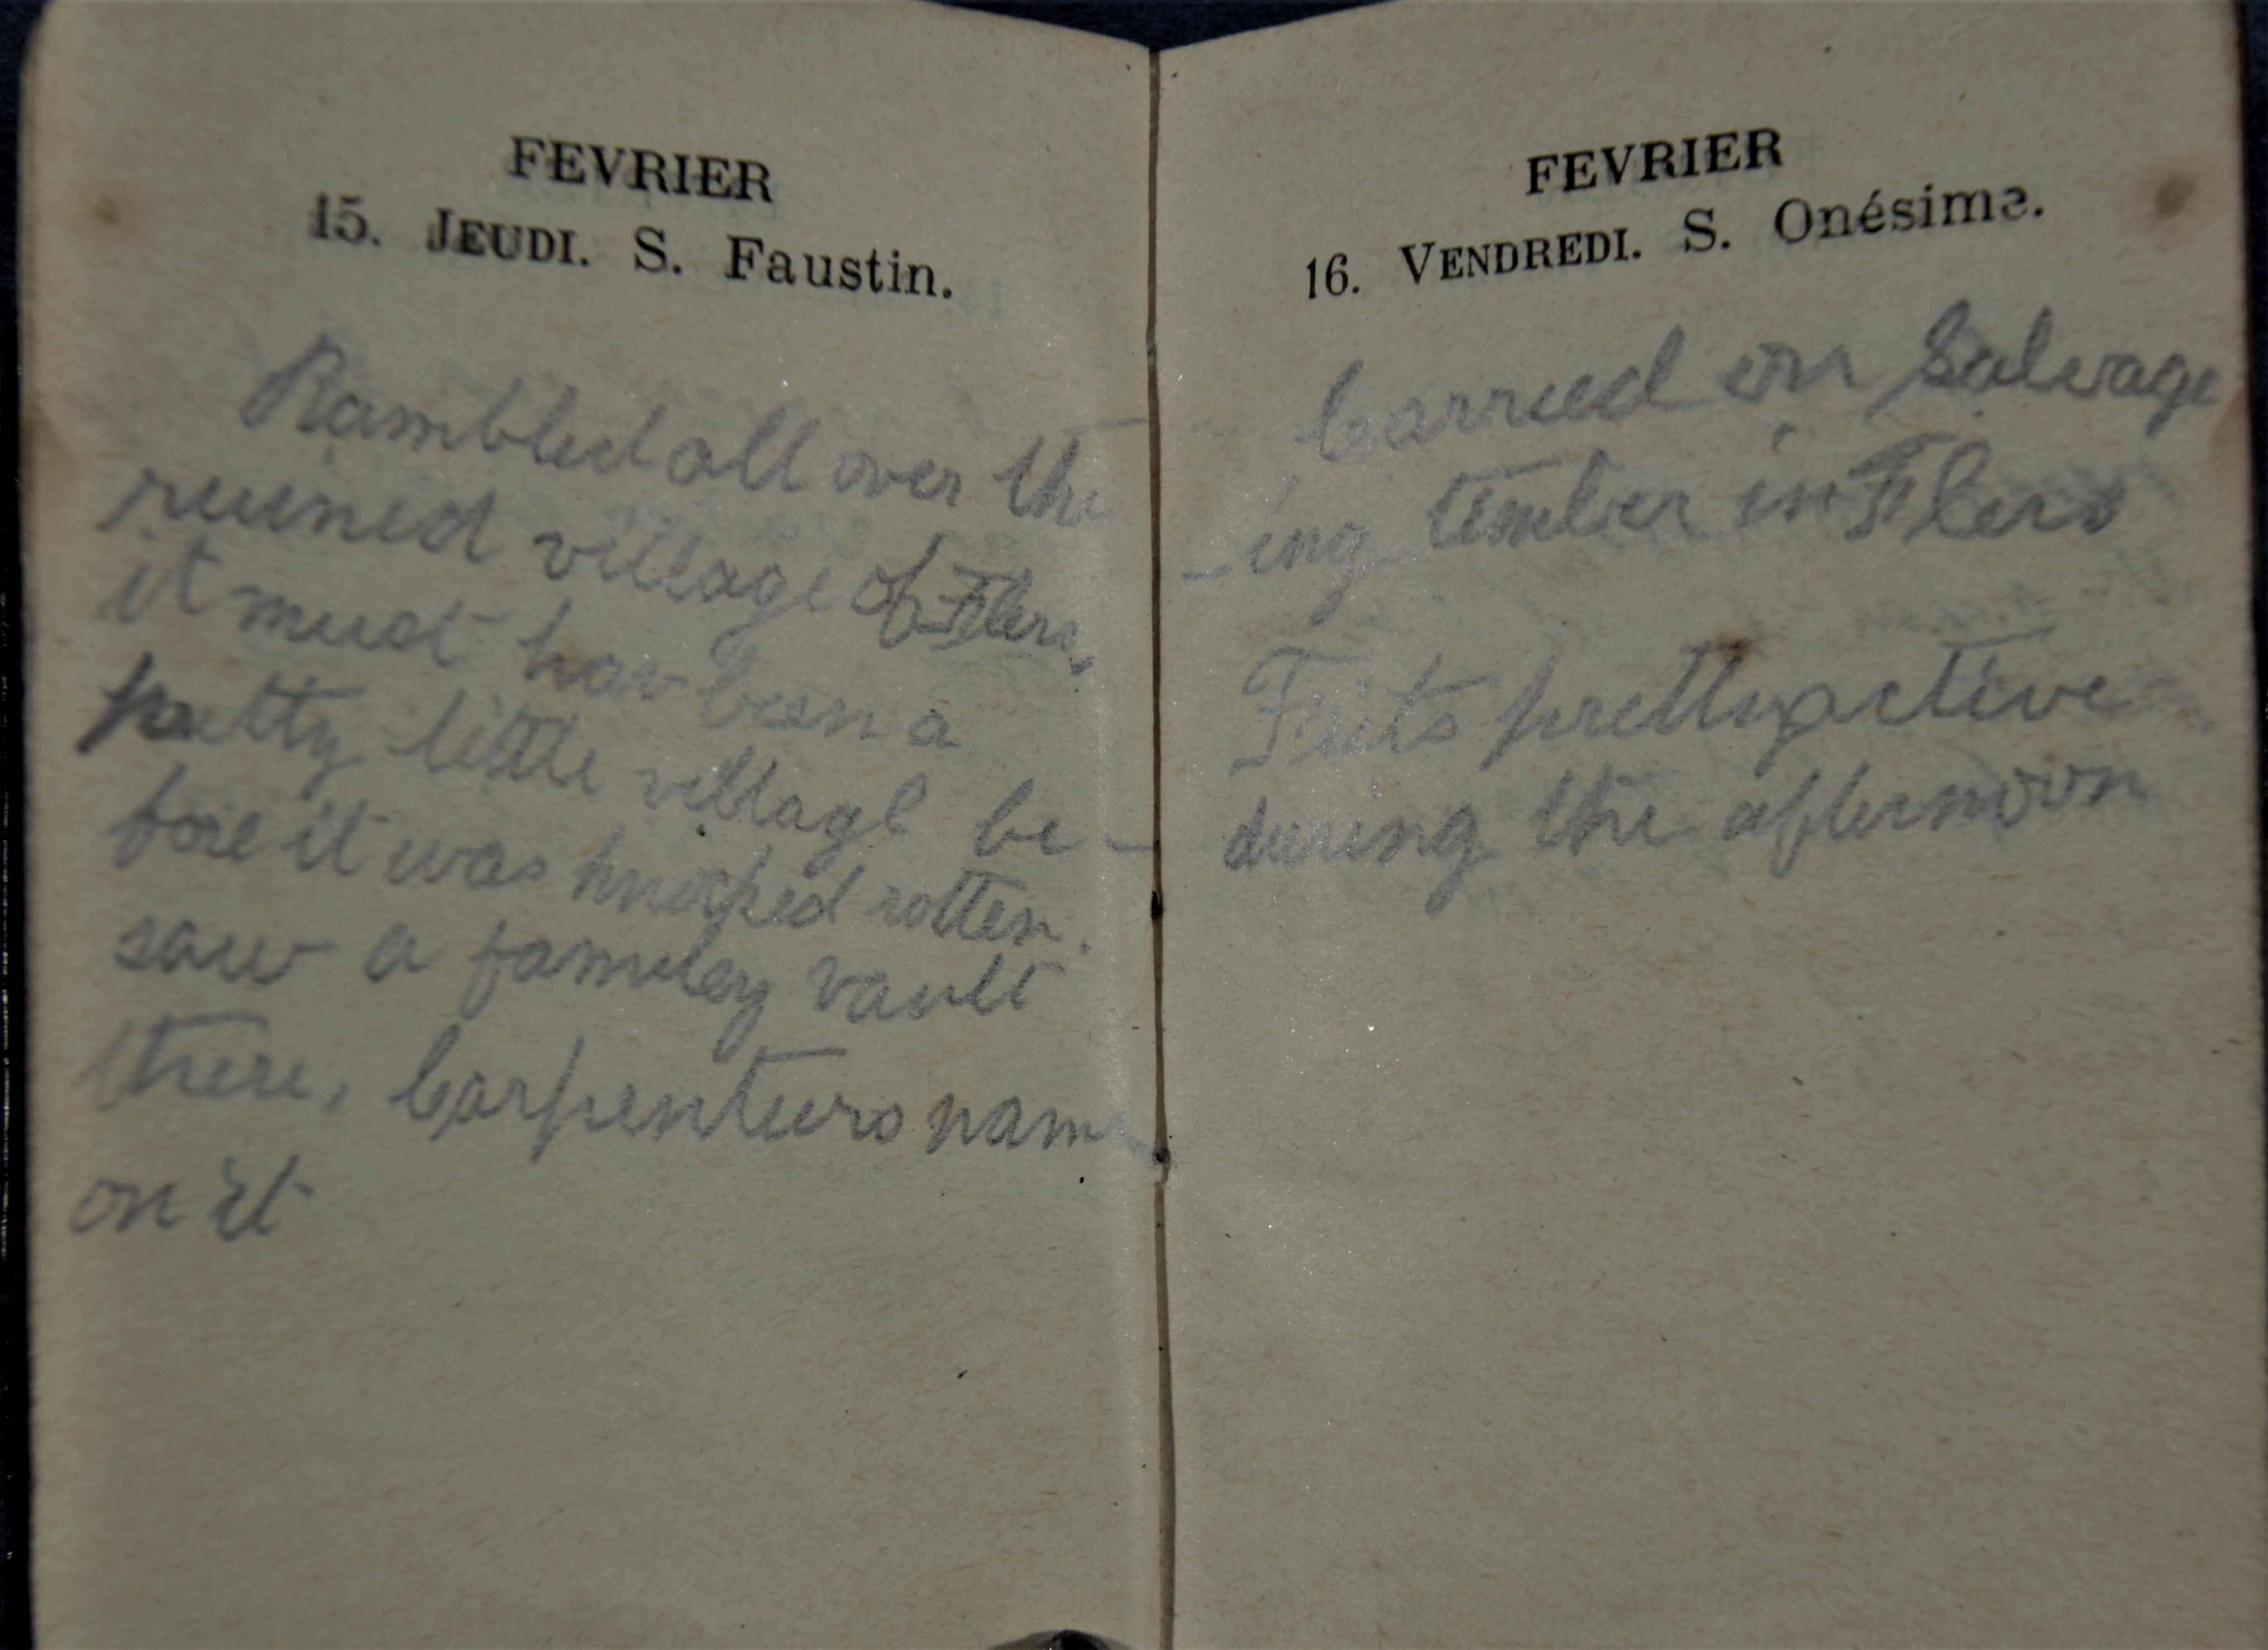 FEVRIER
15. JEUDI. S. Faustin.
Rambled all over the
ruined village of Flers,
it must hav been a
pretty little village be-
fore it was knocked rotten.
saw a familey vault
there, Carpenteurs name
on it
FEVRIER
16. VENDREDI. S. Onésime.
Carried on Salvage
-ing timber in Flers
Frits pretty active
during the afternoon